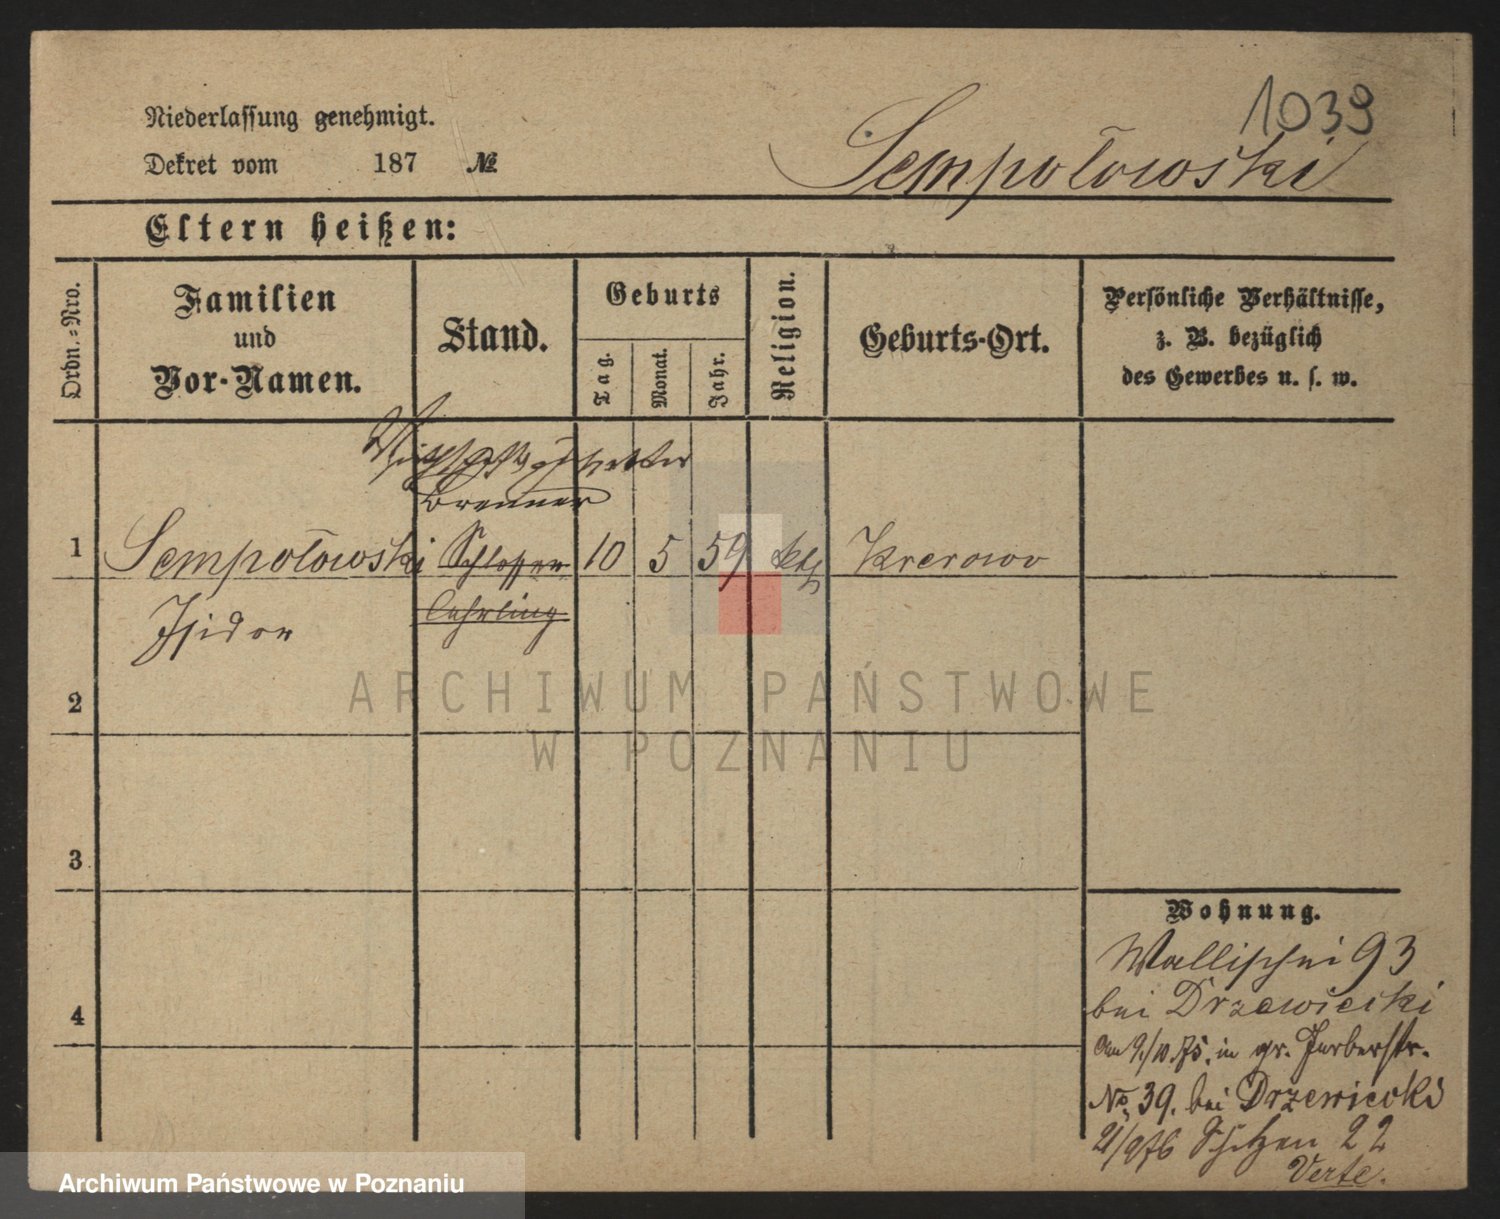 1039
Niederlassung genehmigt.
Dekret vom 187 №
Sempołowski
Eltern heißen:
Ordn.-Nro.
Familien
und
Vor-Namen.
Stand.
Geburts
Tag.
Monat.
Jahr.
Religion.
Geburts-Ort.
Persönliche Verhältnisse,
z. B. bezüglich
des Gewerbes u. s. w.
Brenner
1 Sempołowski Schlosser 10 5 59 kth Krerowo
Isidor lehrling
2
ARCHIWUM PAŃSTWOWE
W POZNANIU
3
4
Wohnung.
Wallischei 93
bei Drzewiecki
Am 9/10.75. in gr. Gerberstr.
No. 39. bei Drzewiecki
21/9 76 Schützen 22
Verte.
Archiwum Państwowe w Poznaniu